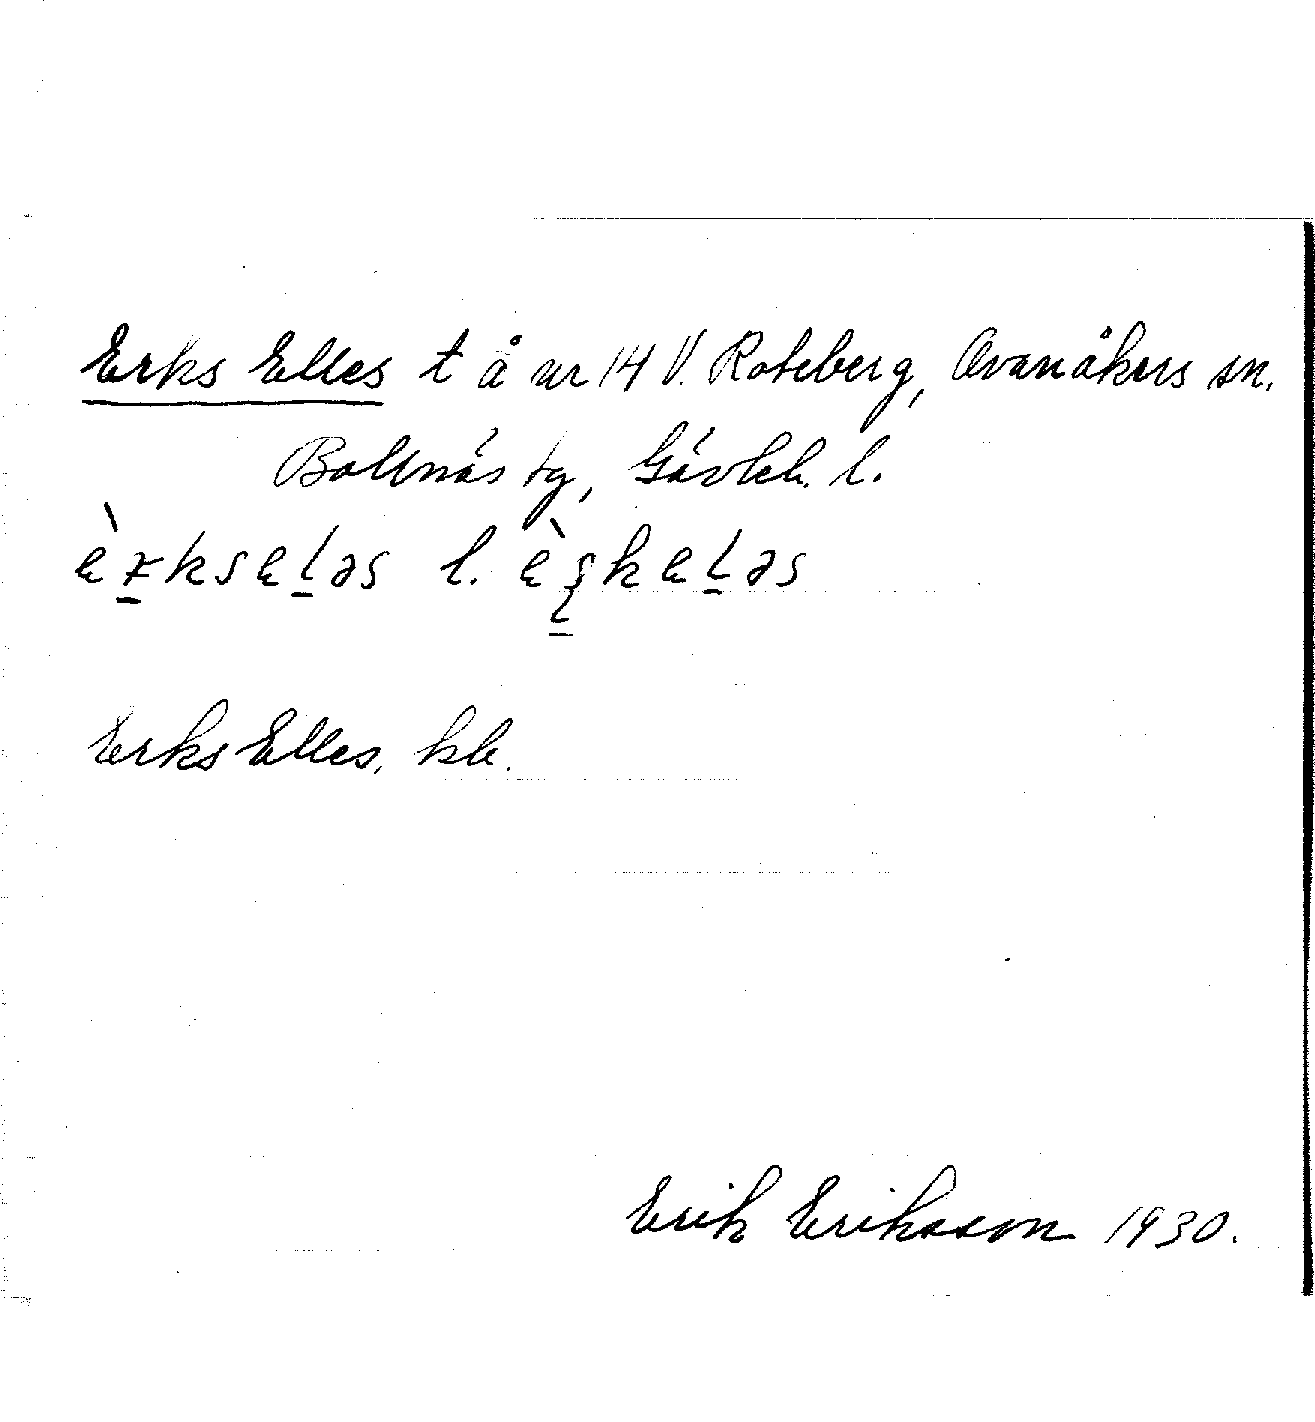 Erks Elles t å nr 14 V. Roteberg, Ovanåkers sn.
Bollnäs tg, Gävleb. l.
l.
Erks Elles, kb.
Erik Eriksson 1930.